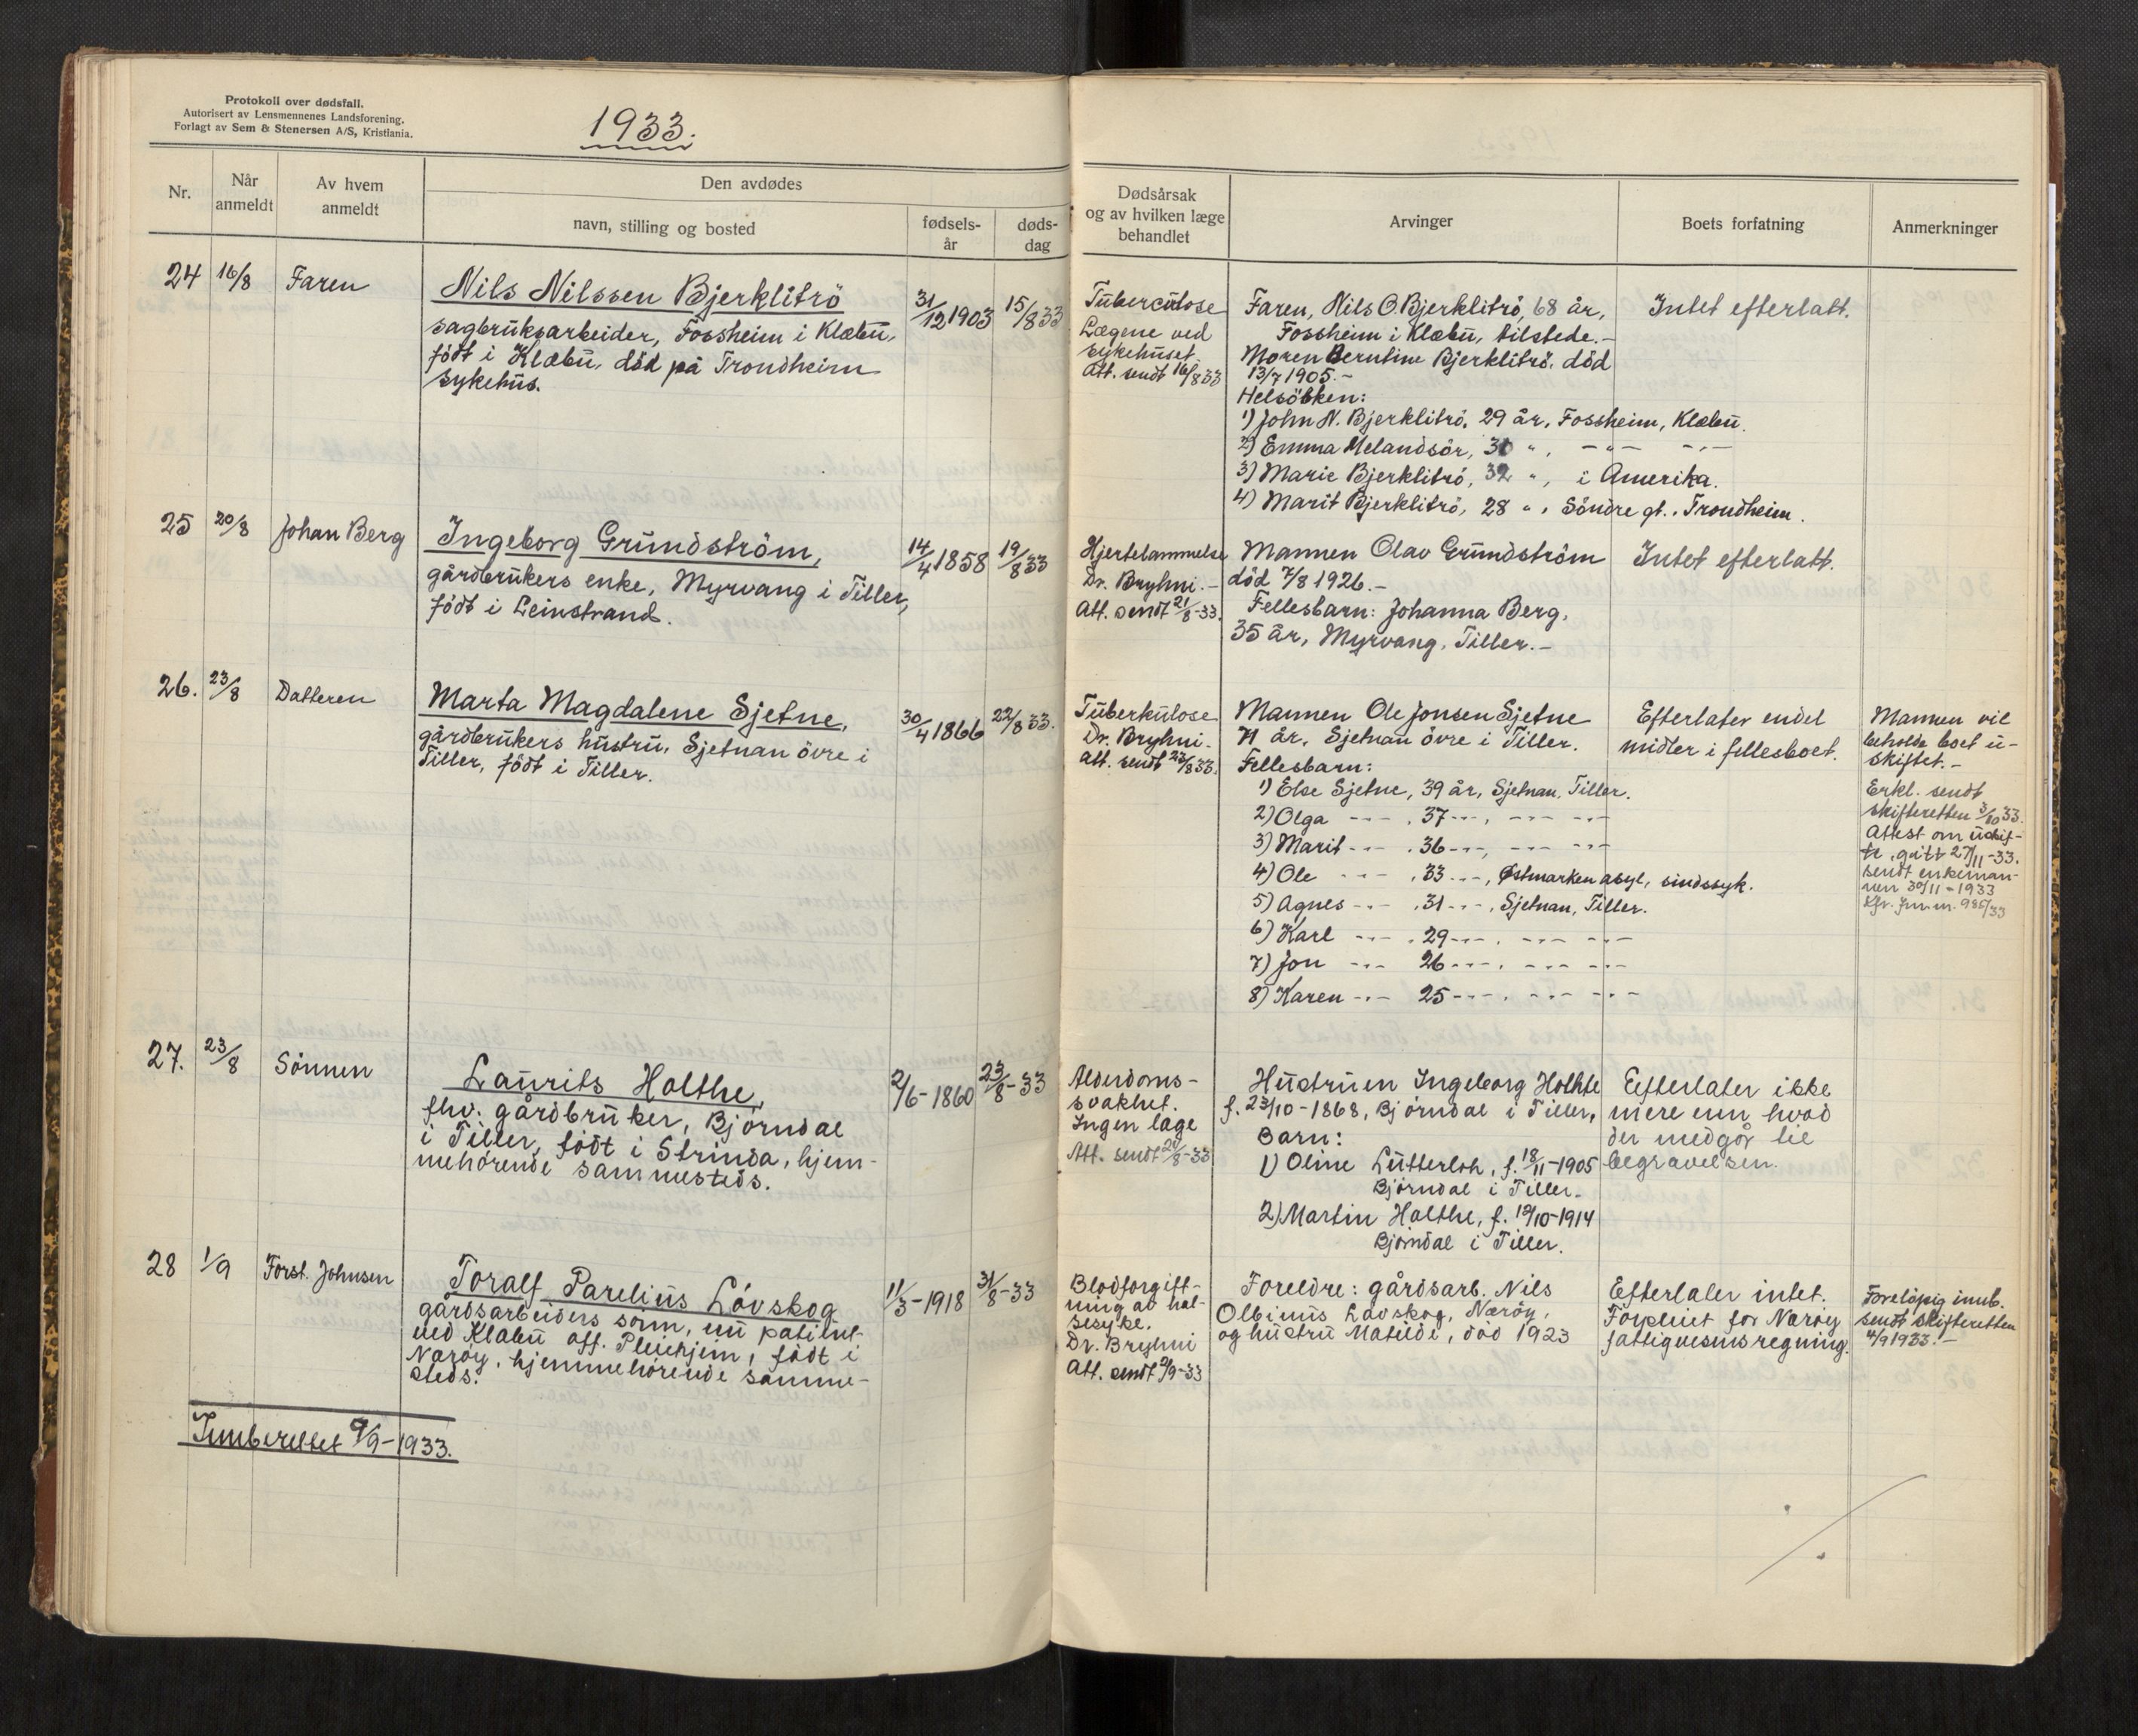 Protokoll over dødsfall.
Autorisert av Lensmennenes Landsforening.
Forlagt av Sem & Stenersen A/S, Kristiania.
1933.
Nr.
Når anmeldt
Av hvem anmeldt
Den avdødes
navn, stilling og bosted
fødsels-
år
døds-
dag
Dødsårsak
og av hvilken læge
behandlet
Arvinger
Boets forfatning
Anmerkninger
24 16/8 Faren
Nils Nilssen Bjerklitrö
sagbruksarbeider, Fossheim i Klæbu,
födt i Klæbu, död på Trondheim
sykehus.
31/12 1903 15/8 33
Tuberculose
Lægene ved
sykehuset.
Att. sendt 16/8 33
Faren, Nils O. Bjerklitrö, 68 år,
Fossheim i Klæbu, tilstede.-
Moren Berntine Bjerklitrö, död
13/7 1905.-
Helsösken:
1) John N. Bjerklitrö, 29 år, Fossheim, Klæbu.
2) Emma Melandsör, 30 " , -"- -"-
3) Marie Bjerklitrö, 32 " , i Amerika.
4) Marit Bjerklitrö, 28 " , Söndre gt., Trondheim.
Intet efterlatt.
25 20/8 Johan Berg
Ingeborg Grundström,
gårdbrukers enke, Myrvang i Tiller,
födt i Leinstrand.
14/4 1858 19/8 33
Hjertelammelse
Dr. Bryhni.-
Att. sendt 21/8-33.
Mannen Olav Grundström
död 7/8 1926.-
Fellesbarn: Johanna Berg,
35 år, Myrvang, Tiller.-
Intet efterlatt.
26. 23/8 Datteren
Marta Magdalene Sjetne,
gårdbrukers hustru, Sjetnan övre i
Tiller, födt i Tiller.
30/4 1866 22/8 33.
Tuberkulose
Dr. Bryhni.
Att. sendt 23/8 33.
Mannen Ole Jonsen Sjetne
71 år, Sjetnan övre i Tiller.
Fellesbarn:
1) Else Sjetne, 39 år, Sjetnan, Tiller.
2) Olga -"- , 37 -"- , -"- -"-
3) Marit -"- , 36 -"- , -"- -"-
4) Ole -"- , 33 -"- , Østmarken asyl, sindssyk.
5) Agnes -"- , 31 -"- , Sjetnan, Tiller.
6) Karl -"- , 29 -"- , -"- -"-
7) Jon -"- 26 -"- , -"- -"-
8) Karen -"- 25 -"- , -"- -"-
Efterlater endel
midler i fellesboet.
Mannen vil
beholde boet u-
skiftet.-
Erkl. sendt
skifteretten 3/10 33.
Attest om uskif-
te, gitt 27/11-33.
sendt enkeman-
nen 30/11-1933
27. 23/8 Sönnen
Laurits Holthe,
fhv. gårdbruker, Bjørndal
i Tiller, födt i Strinda, hjem-
mehørende sammesteds.
2/6-1860 23/8-33
Alderdoms-
svakhet.
Ingen læge
Hustruen Ingeborg Holthe
f. 23/10-1868, Bjørndal i Tiller,
Barn:
1) Oline Lütterloh, f. 18/11-1905
Bjørndal i Tiller.
2) Martin Holthe, f. 19/10-1914
Bjørndal i Tiller.
Eefterlater ikke
mere enn hvad
der medgår til
begravelsen.
28 1/9 Forst. Johnsen
Toralf Parelius Lövskog
gårdsarbeiders sönn, nu patient
ved Klæbu off. Pleiehjem, födt i
Nærøy, hjemmehørende samme-
steds.
11/3-1918 31/8-33
Blodforgift-
ning av hal-
sesyke.
Dr. Bryhni
Att. sendt 2/9-33
Foreldre: gårdsarb. Nils
Olbinus Løvskog, Nærøy,
og hustru Matilde, död 1923
Efterlater intet.
Forpleiet for Nærøy
fattigvesens regning.
Foreløpig innb.
sendt skifteretten
4/9 1933.-
Innberettet 9/9-1933.